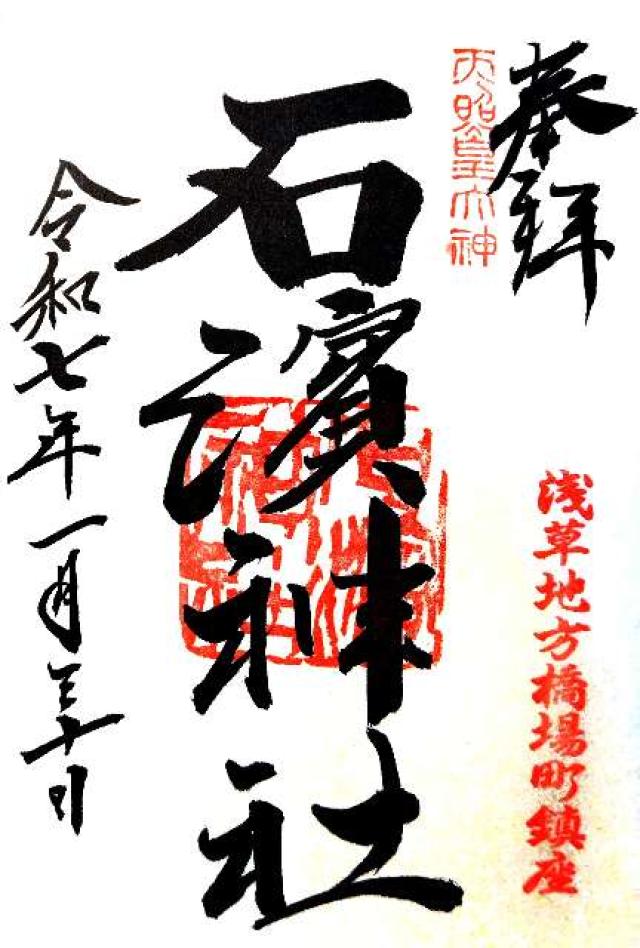 奉拝
天照皇大神
浅草地方橋場町鎮座
石濱神社
令和七年一月三十日